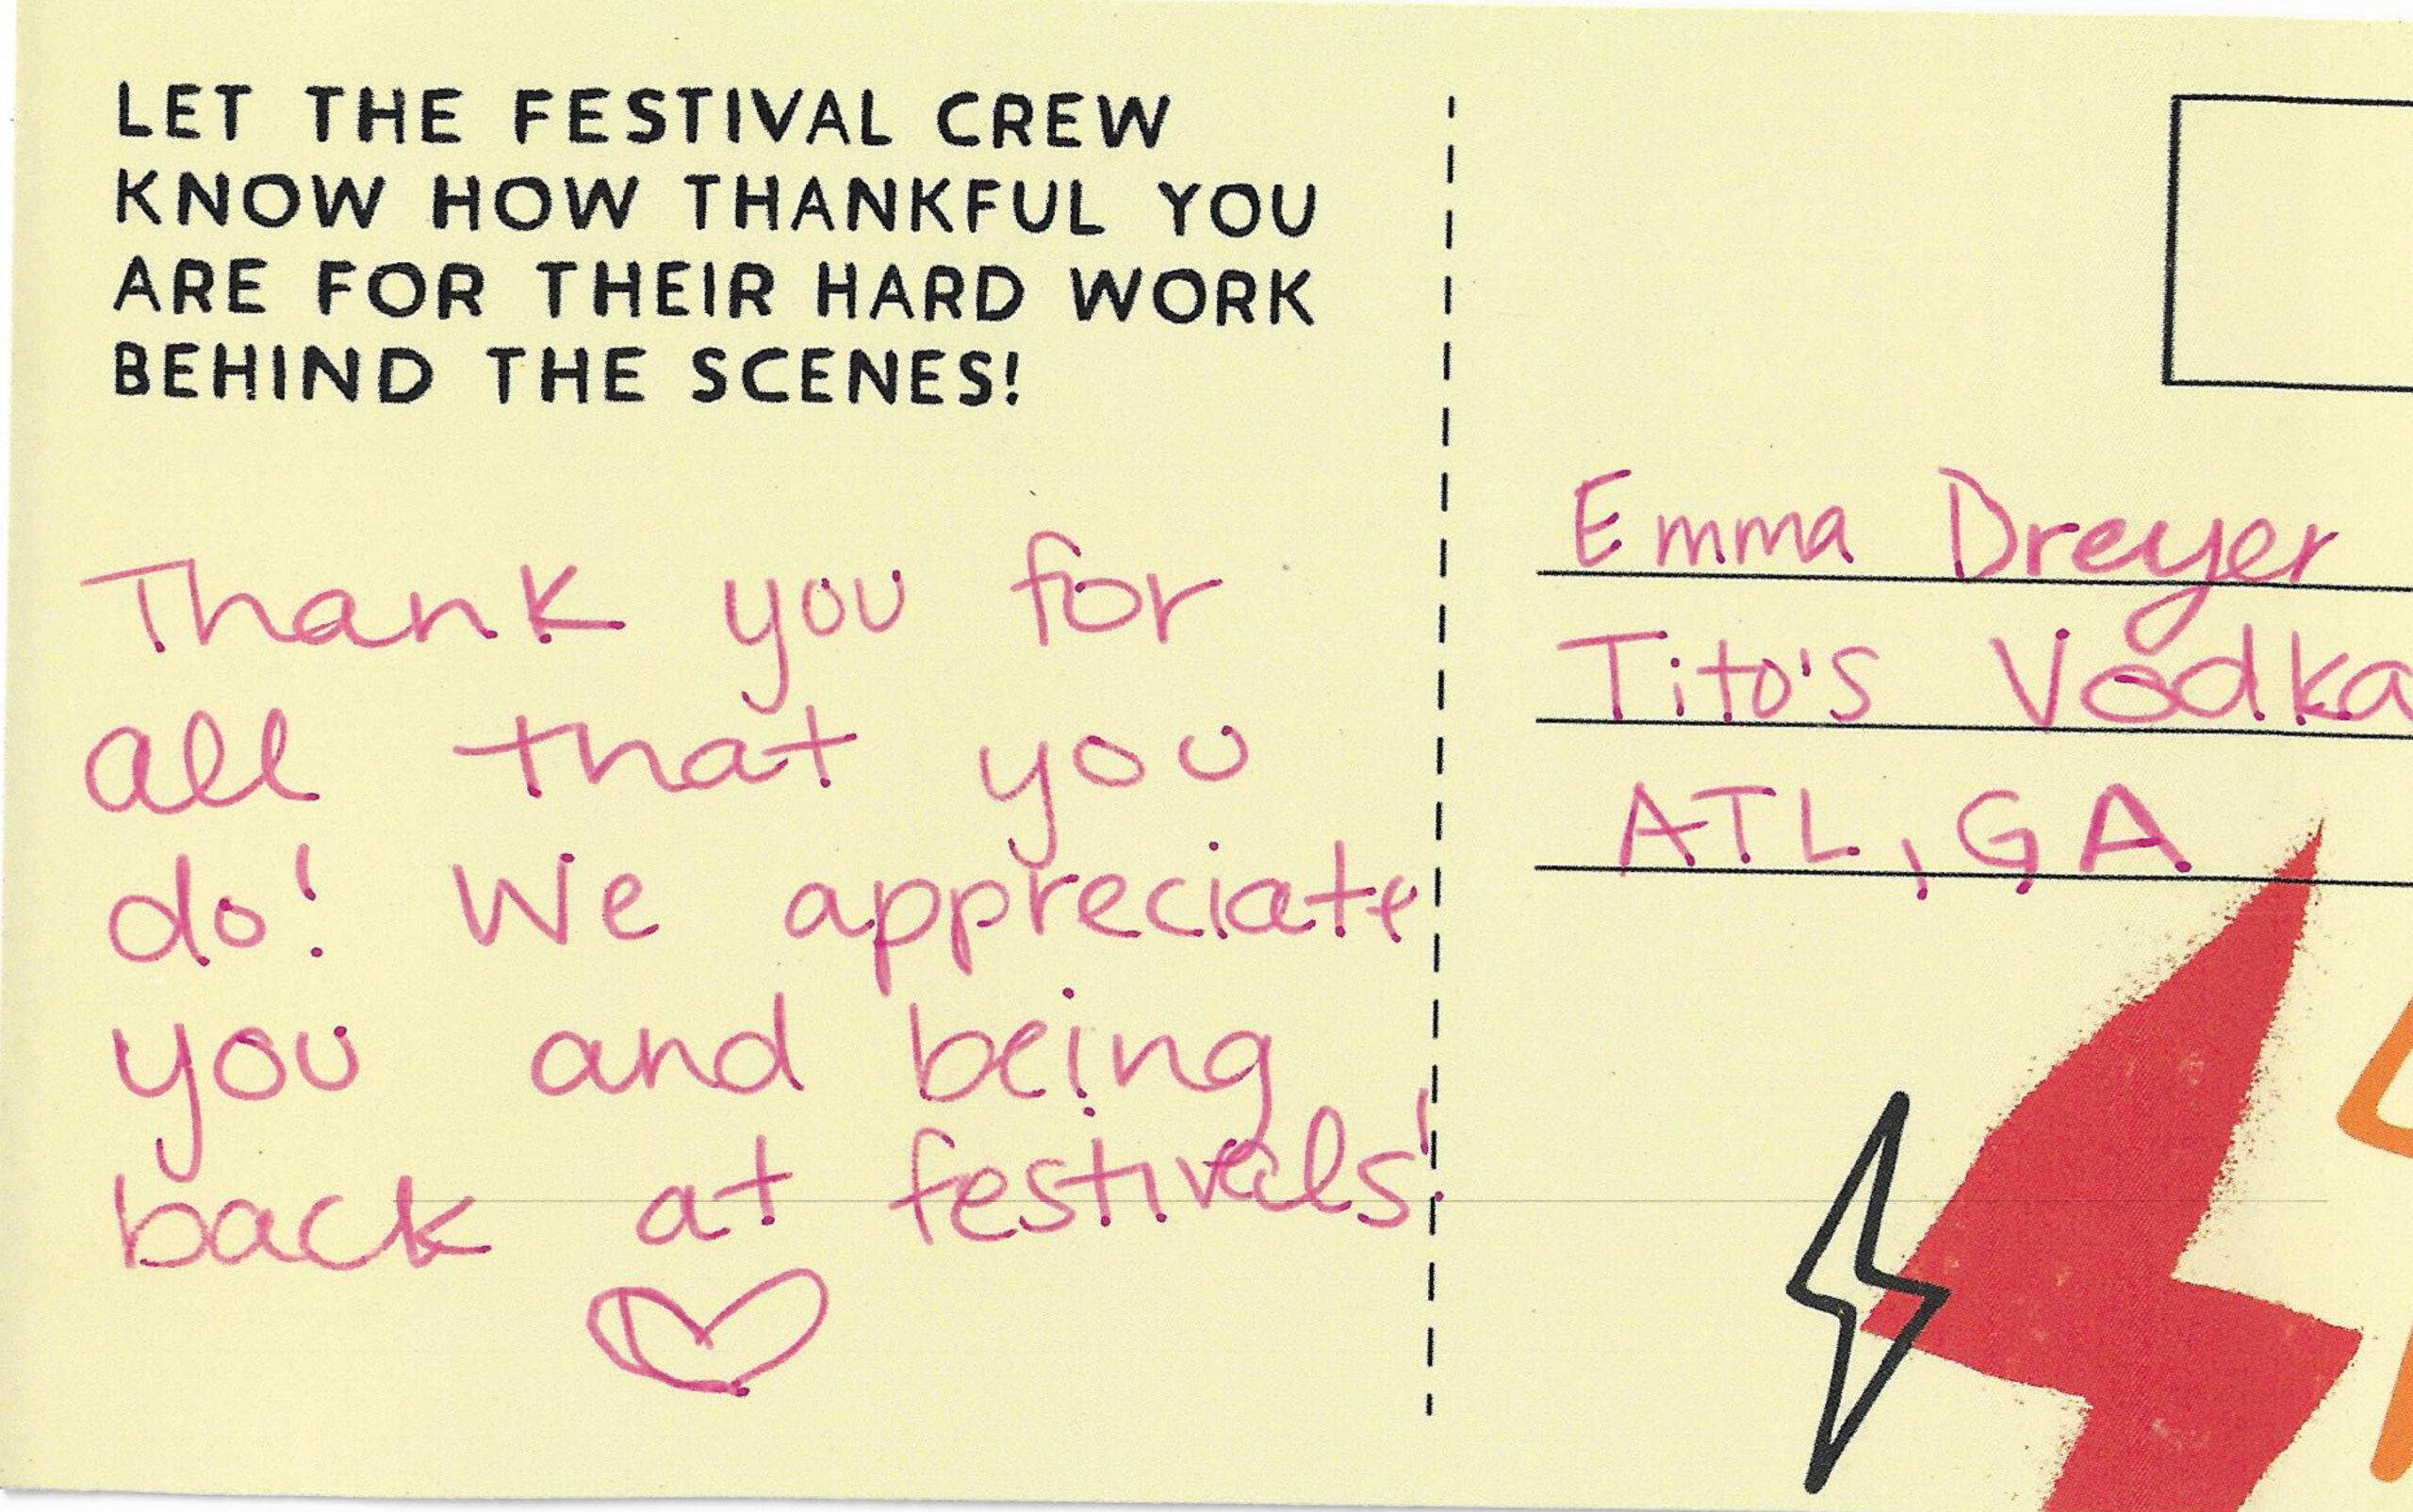 LET THE FESTIVAL CREW
KNOW HOW THANKFUL YOU
ARE FOR THEIR HARD WORK
BEHIND THE SCENES!
Thank you for
all that you
do! We appreciate
you and being
back at festivals!
Emma Dreyer
Tito's Vodka
ATL, GA